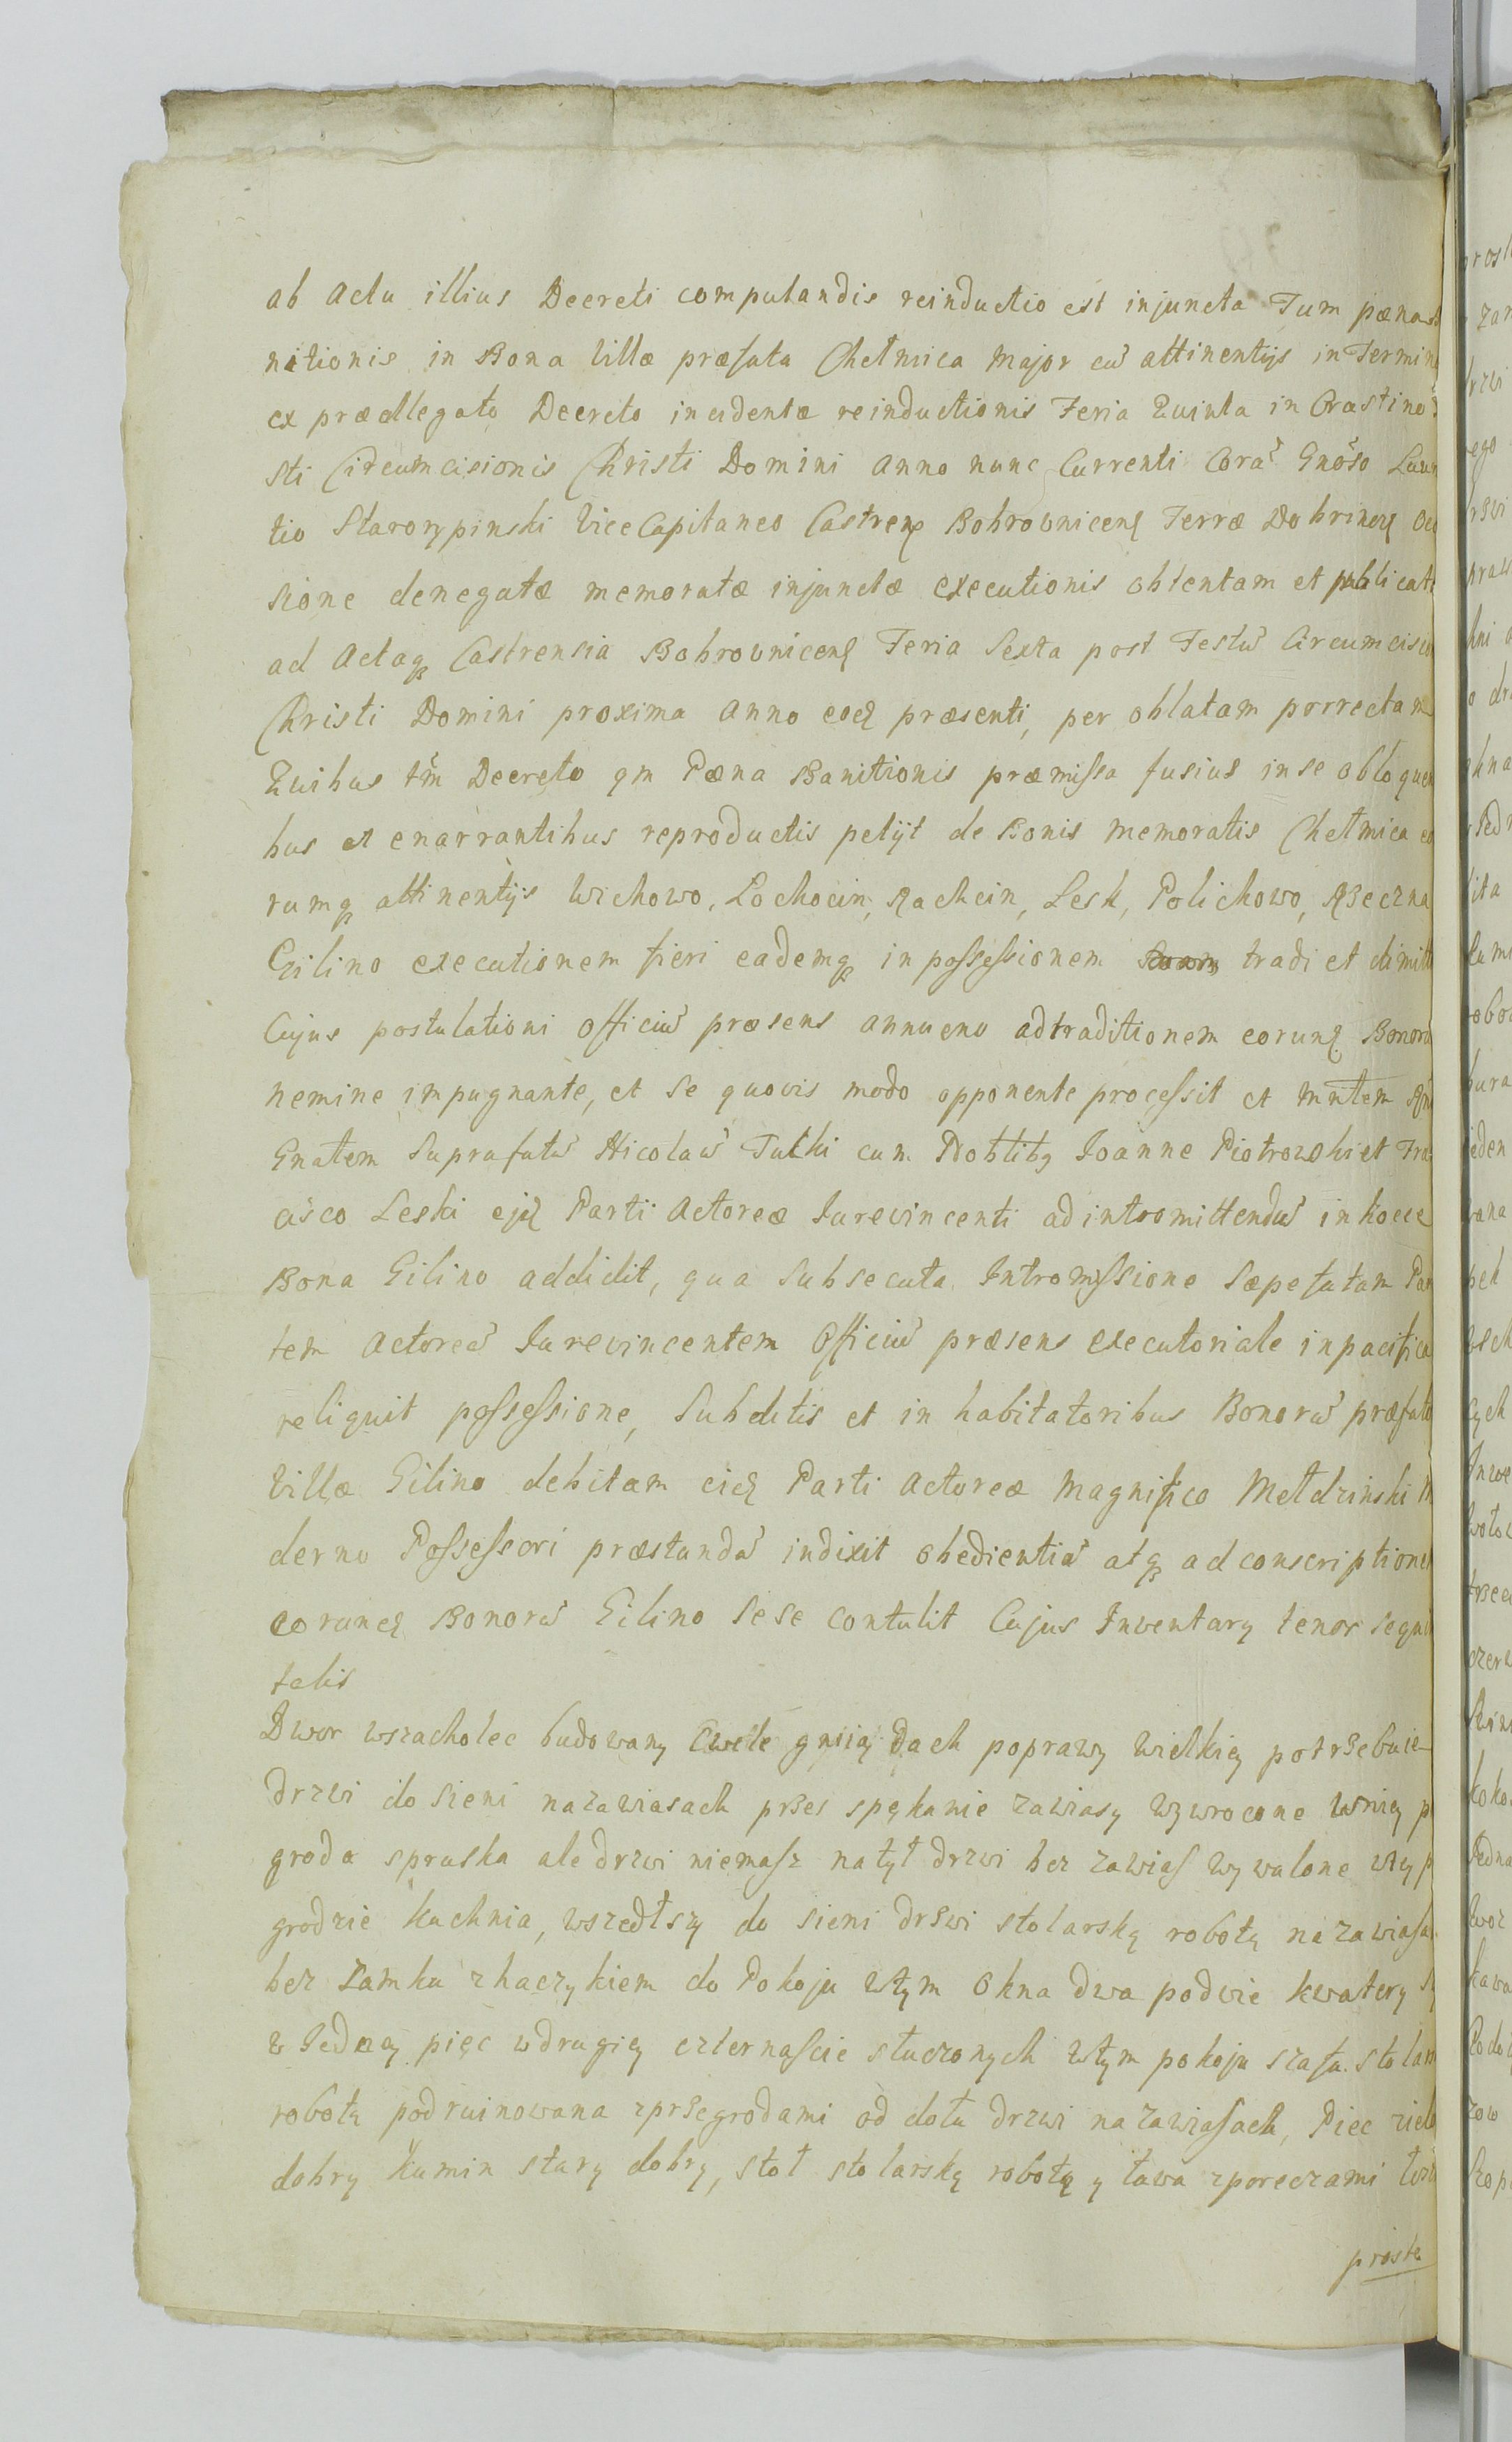 ab actu illius Decreti computandis reinductio est injuncta Tum pæna
nitionis in Bona Villæ præfata Chełmica Major cũ attinentijs in Termin
ex præallegato Decreto incidentæ reinductionis Feria Quinta in Crastino
sti Circumcisionis Christi Domini Anno nunc Currenti Corã Gnõso Lau
tio Starorypinski Vice Capitaneo Castren Bobrovnicen Terræ Dobrinen
sione denegatæ memoratæ injunctæ executionis obtentam et publicat
ad Actaq Castrensia Bobrovnicen Feria Sexta post Festũ Circumcisio
Christi Domini proxima Anno eod præsenti, per oblatam porrectam
Quibus tm̃ Decreto qm Pæna Banitionis præmissa fusius in se obloquen
bus et enarrantibus reproductis petijt de Bonis memoratis Chełmica eo
rumq attinentijs Wichowo, Łochocin, Rachcin, Lesk, Polichowo, Rzeczna
Gilino executionem fieri eademq in possessionem tradi et dimitt
Cujus postulationi Officiũ præsens annueno ad traditionem eorund Bonorũ
nemine impugnante, et se quovis modo opponente processit et Mntem
Gnatem Suprafatũ Nicolaũ Tulki cum Nobtibq Joanne Piotrowski et Fra
cisco Leski ejd Parti Actoreæ Jurevincenti ad intromittendũ in hocce
Bona Gilino addidit, qua Subsecuta Intromissione Sæpefatam Par
tem Actoreã Jurevincentem Officiũ præsens executoriale in pacifica
reliquit possessione, Subditis et in habitatoribus Bonorũ præfato
Villæ Gilino debitam eid Parti Actoreæ Magnifico Mełdzinski M
derno Possessori præstandã indixit obedientiã atq ad conscriptione
eorund Bonorũ Gilino Sese contulit Cujus Inventary tenor Sequi
talis
Dwor wszacholec budowany Cwele gniią Dach poprawy wielkiey potrzebuie
Drzwi do sieni nazawiasach przes spękanie zawiasy wywrocone wniey p
groda spruska ale drzwi niemasz natył drzwi bez zawias wywalone wty p
grodzie kuchnia, wszedłszy do sieni drzwi stolarską robotą na zawiasa
bez zamku zhaczykiem do Pokoju wtym Okna dwa podwie kwatery
w Jedney pięc wdrugiey czternascie stuczonych wtym pokoju szafa stolar
robotą podruinowana zprzegrodami od dołu drzwi na zawiasach, Piec ziel
dobry kumin stary dobry, stoł stolarską robotą y ława zporeczami
proste